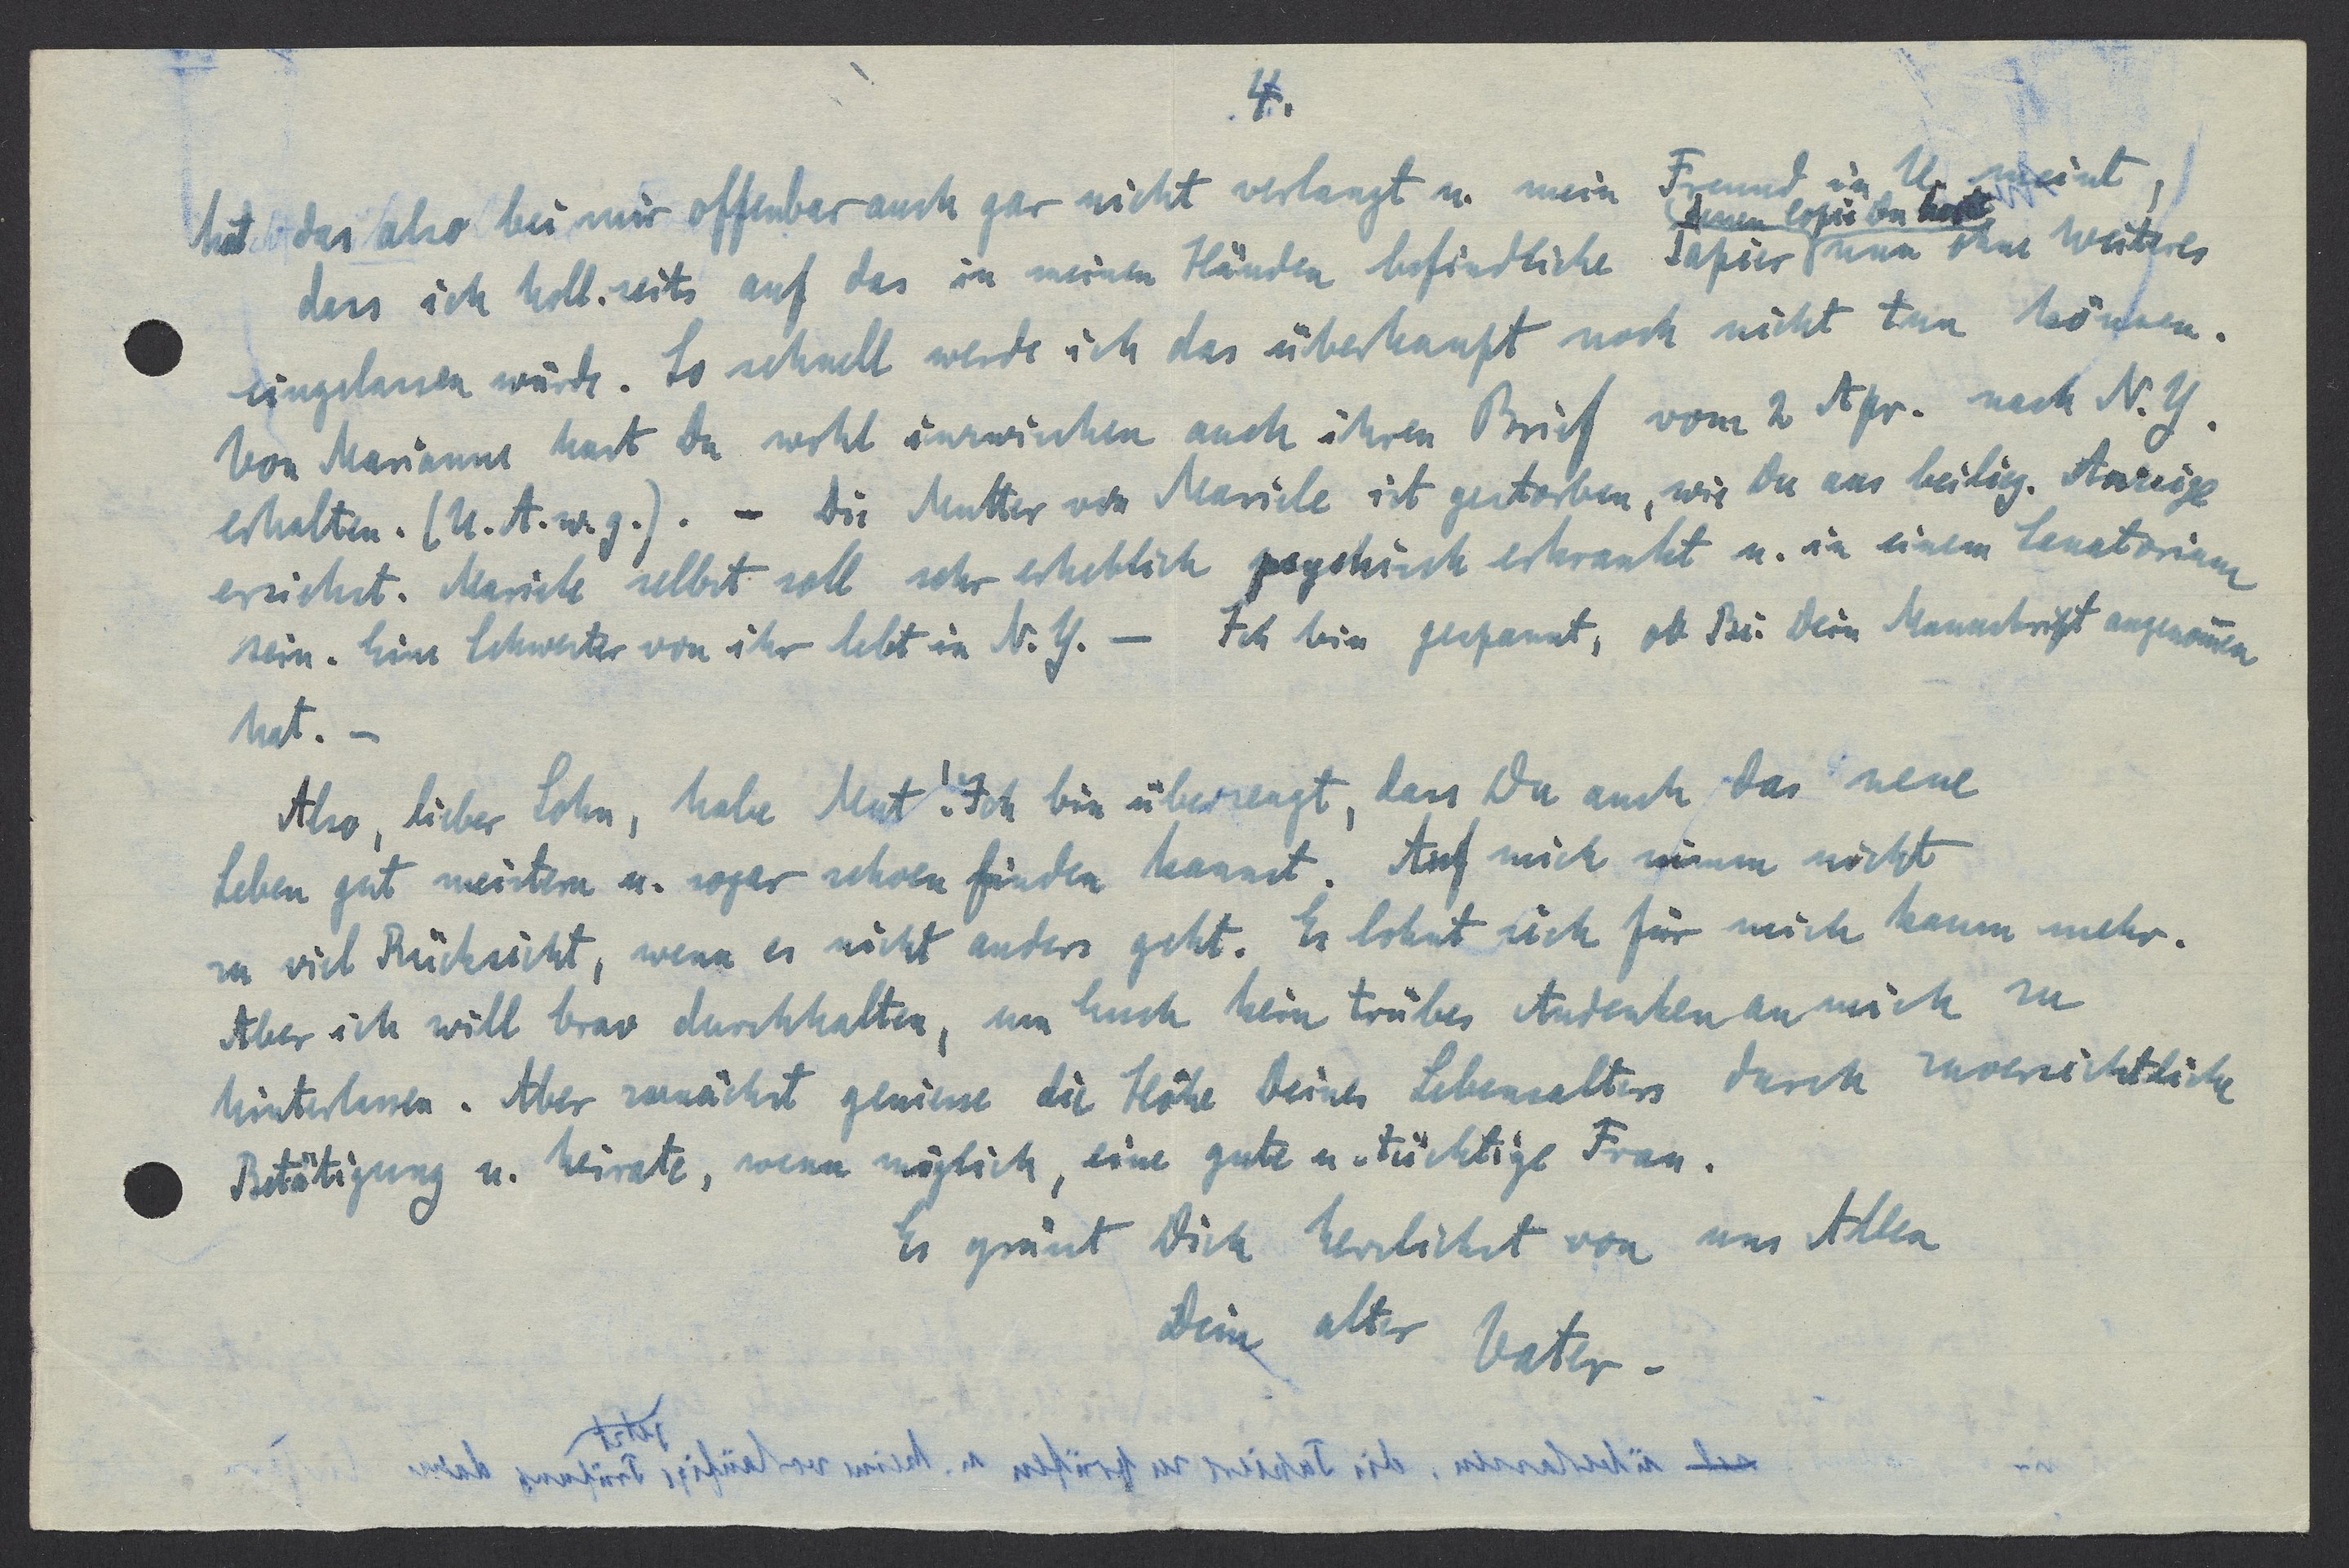 4.
hat das also bei mir offenbar auch gar nicht verlangt u. mein Freund in U. meint,
dessen Copie Du hast
dass ich holl.seits auf das in meinen Händen befindliche Papier nun ohne Weiteres
eingelassen würde. So schnell werde ich das überhaupt noch nicht tun können.
Von Marianne hast Du wohl inzwischen auch ihren Brief vom 2 Apr. nach N.Y.
erhalten. (U.A.w.g.). - Die Mutter von Mariele ist gestorben, wie Du aus beilieg. Anzeige
ersiehst. Mariele selbst soll sehr erheblich psychisch erkrankt u. in einem Sanatorium
sein. Eine Schwester von ihr lebt in N.Y. — Ich bin gespannt, ob Bi. Dein Manuskript angenom̄en
hat. -
Also, lieber Sohn, habe Mut! Ich bin überzeugt, dass Du auch das neue
Leben gut meistern u. sogar schoen finden kannst. Auf mich nimm nicht
zu viel Rücksicht, wenn es nicht anders geht. Es lohnt sich für mich kaum mehr.
Aber ich will brav durchhalten, um Euch kein trübes Andenken an mich zu
hinterlassen. Aber zunächst geniesse die Höhe Deines Lebensalters durch zuversichtliche
Betätigung u. heirate, wenn möglich, eine gute u. tüchtige Frau.
Es grüsst Dich herzlichst von uns Allen
Dein alter Vater -